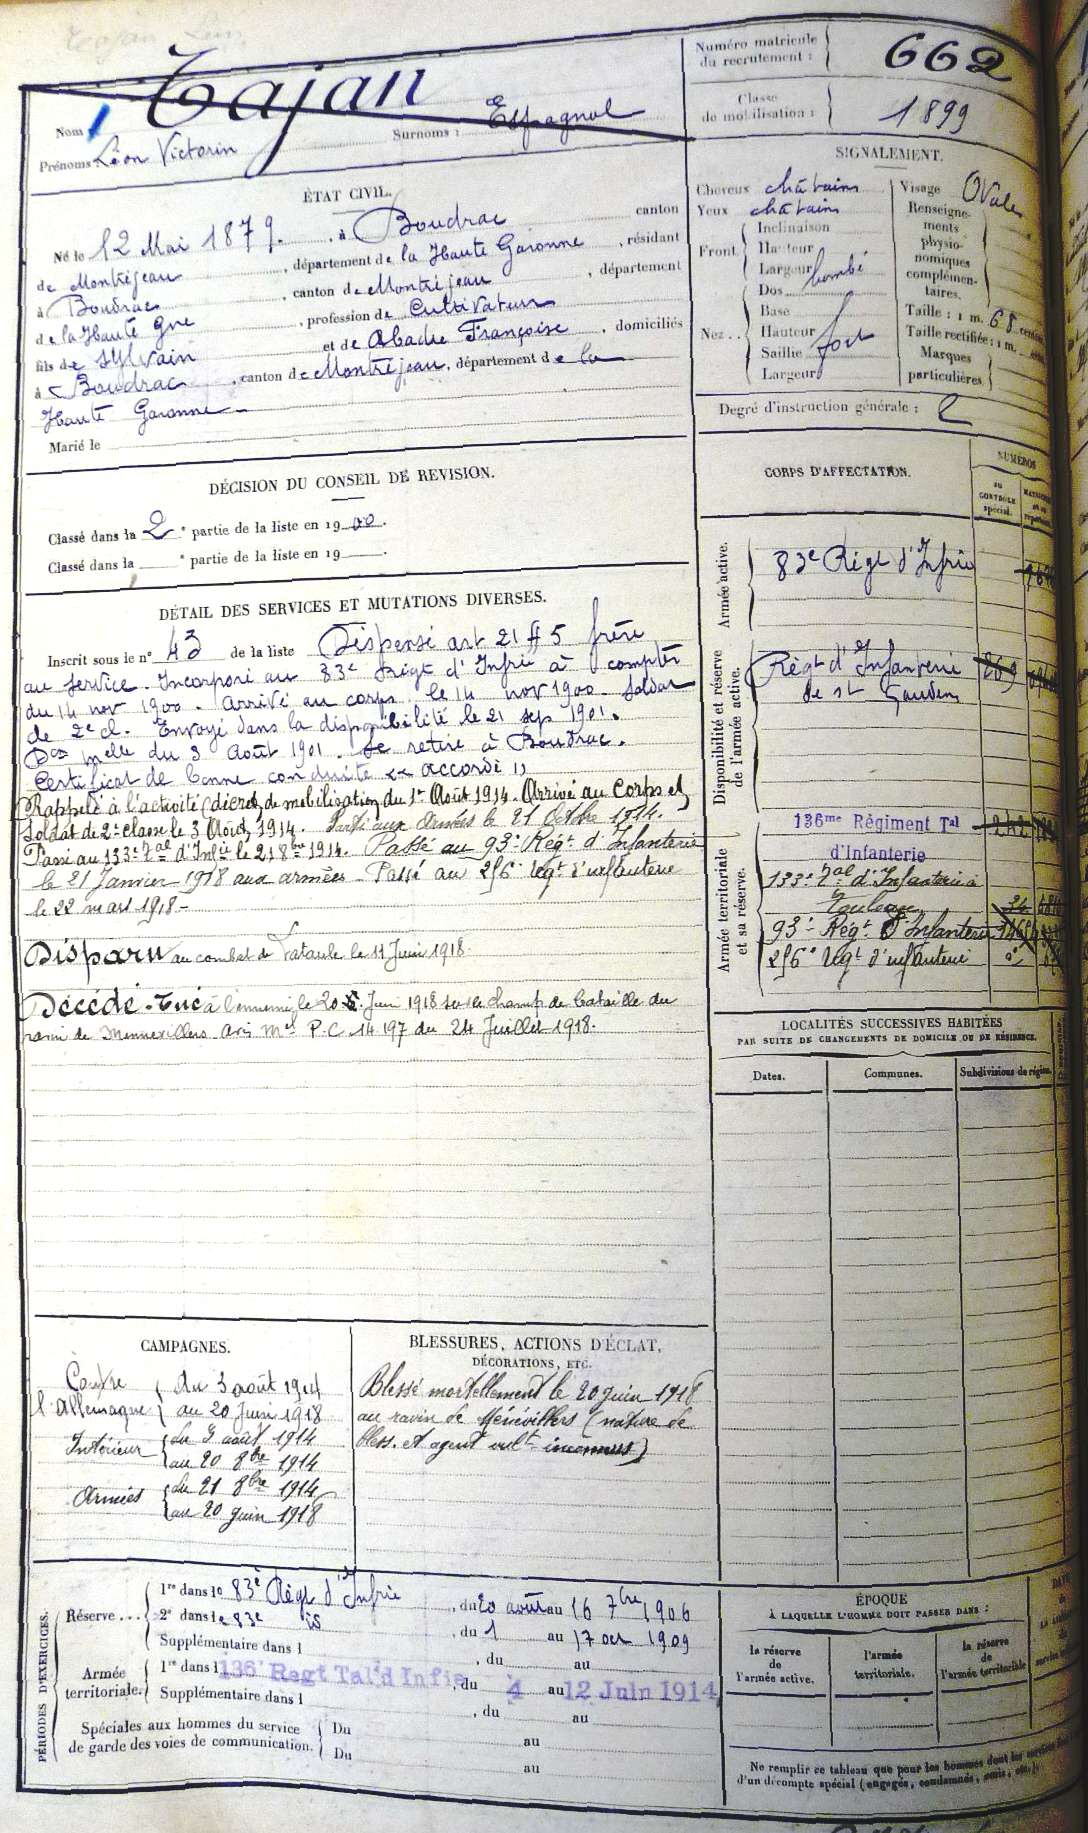 Tajan
Numéro matricule du recrutement : 662
Classe de mobilisation : 1899
Nom
Surnoms : Espagnol
Prénoms Léon Victorin
ÉTAT CIVIL.
Né le 12 Mai 1879, à Boudrac canton
de Montréjeau, département de la Haute Garonne, résidant
à Boudrac, canton de Montréjeau, département
de la Haute Gne, profession de Cultivateur
fils de Sylvain et de Abadie Françoise, domiciliés
à Boudrac, canton de Montréjeau, département de la
Haute Garonne
Marié le
SIGNALEMENT.
Cheveux châtains
Yeux châtains
Front. Inclinaison
Hauteur
Largeur bombé
Nez. Dos
Base
Hauteur
Saillie fort
Largeur
Visage Ovale
Renseignements physionomiques complémentaires.
Taille : 1 m. 68 cent
Taille rectifiée : 1 m.
Marques particulières
Degré d'instruction générale : 2
DÉCISION DU CONSEIL DE REVISION.
Classé dans la 2e partie de la liste en 1900.
Classé dans la e partie de la liste en 19 .
DÉTAIL DES SERVICES ET MUTATIONS DIVERSES.
Inscrit sous le n° 43 de la liste Dispensé art 21 § 5 frère
au service. Incorporé au 83e Régt d'Infie à compter
du 14 nov 1900. Arrivé au corps le 14 nov 1900. Soldat
de 2e cl. Envoyé dans la disponibilité le 21 sep 1901.
Don melle du 3 Août 1901. Se retire à Boudrac.
Certificat de bonne conduite "accordé"
Rappelé à l'activité (décret de mobilisation du 1er Août 1914. Arrivé au Corps et
Soldat de 2e classe le 3 Août 1914. Parti aux Armées le 21 Octobre 1914.
Passé au 133e Tal d'Infie le 21 8bre 1914. Passé au 93e Régt d'Infanterie
le 21 Janvier 1918 aux armées. Passé au 256e Régt d'infanterie
le 22 mars 1918 -
Disparu au combat de Lataule le 11 Juin 1918.
Décédé - Tué à l'ennemi, le 20 Juin 1918 sur le champ de bataille du
ravin de Mennevillers avis Mel P.C. 14197 du 24 Juillet 1918.
CORPS D'AFFECTATION.
NUMÉROS
AU CONTROLE spécial.
Armée active.
83e Régt d'Infrie
Disponibilité et réserve de l'armée active.
Régt d'Infanterie
de St Gaudens
869
Armée territoriale et sa réserve.
136me Régiment Tal
d'Infanterie
133e Tal d'Infanterie à
Toulouse
93e Régt d'Infanterie
256e Régt d'infanterie
LOCALITÉS SUCCESSIVES HABITÉES
PAR SUITE DE CHANGEMENTS DE DOMICILE OU DE RÉSIDENCE.
Dates.
Communes.
Subdivisions de région.
CAMPAGNES.
Contre l'Allemagne
du 3 août 1914
au 20 Juin 1918
Intérieur
du 3 août 1914
au 20 8bre 1914
Armées
du 21 8bre 1914
au 20 juin 1918
BLESSURES, ACTIONS D'ÉCLAT,
DÉCORATIONS, ETC.
Blessé mortellement le 20 juin 1918
au ravin de Ménévillers (nature de
bless. et agent vult inconnus)
PÉRIODES D'EXERCICES.
Réserve...
1re dans le 83e Régt d'Infrie, du 20 août au 16 7bre 1906
2e dans le 83e id, du 1 au 17 oct 1909
Supplémentaire dans l, du au
Armée territoriale.
1re dans l 136e Regt Tal d'Infie, du 4 au 12 Juin 1914
Supplémentaire dans l, du au
Spéciales aux hommes du service
de garde des voies de communication.
Du au
Du au
ÉPOQUE
À LAQUELLE L'HOMME DOIT PASSER DANS :
la réserve de l'armée active.
l'armée territoriale.
la réserve de l'armée territoriale
Ne remplir ce tableau que pour les hommes dont les services
d'un décompte spécial (engagés, condamnés, omis, etc.)